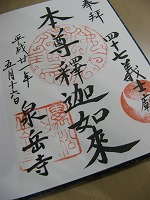 奉拜
四十七義士廟
本尊釋迦如來
平成廿一年
五月十六日
泉岳寺